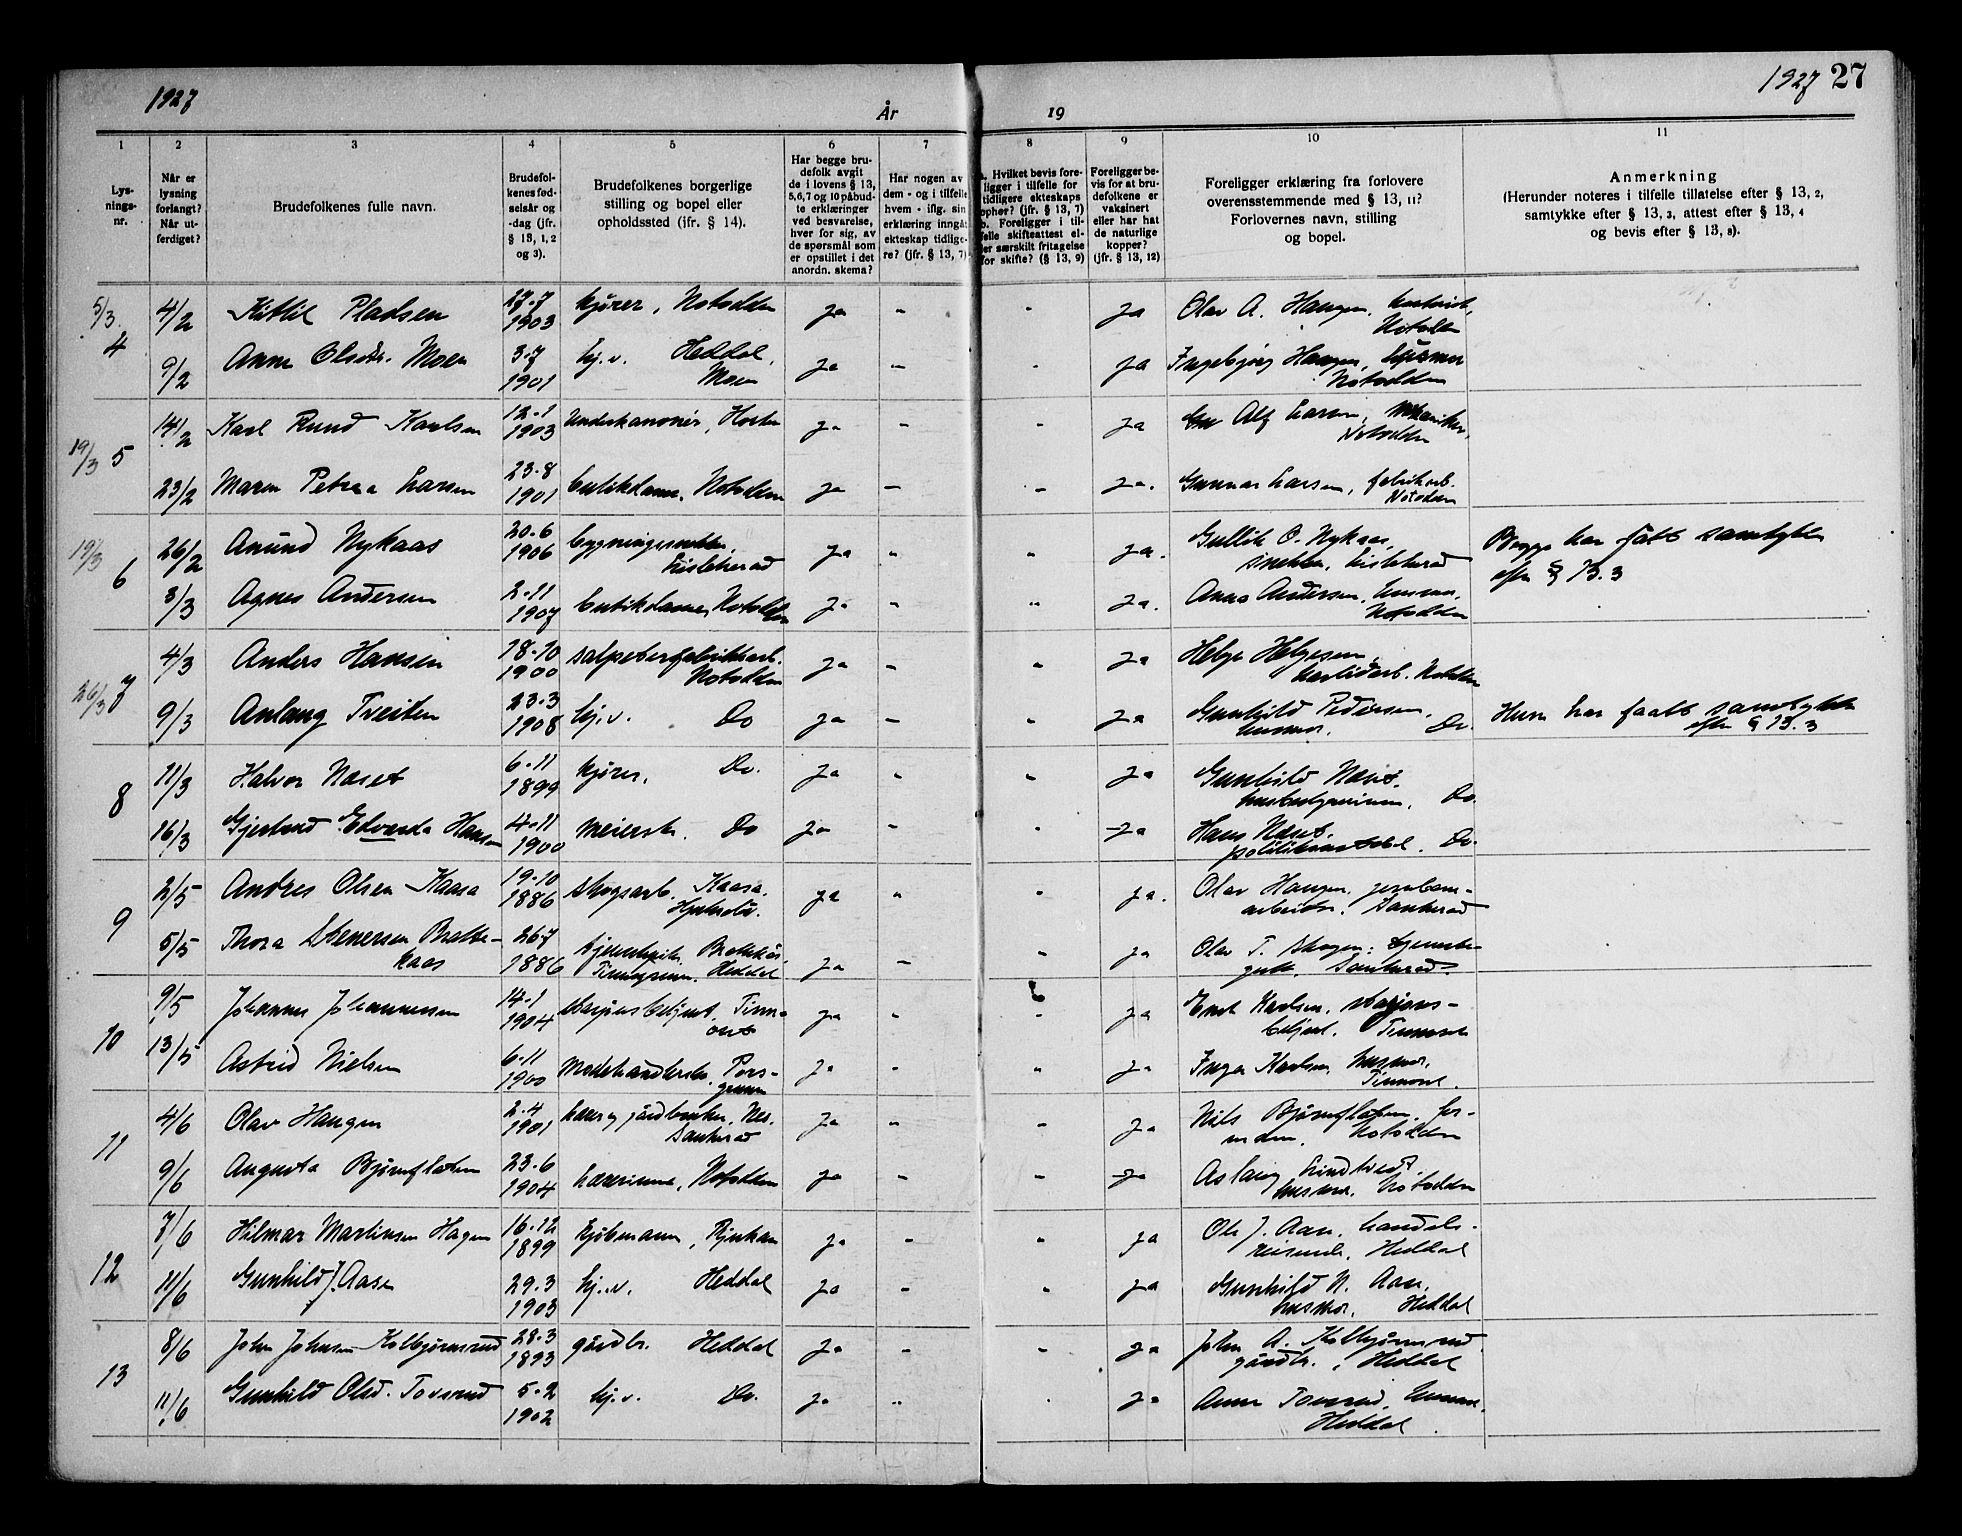 1927
År
19
1927 27
1 2 3 4 5 6 7 8 9 10 11
Lys-
nings-
nr.
Når er
lysning
forlangt?
Når ut-
ferdiget?
Brudefolkenes fulle navn.
Brudefol-
kenes fød-
selsår og
-dag (jfr.
§ 13, 1, 2
og 3).
Brudefolkenes borgerlige
stilling og bopel eller
opholdssted (ifr. § 14).
Har begge bru-
defolk avgit
de i lovens § 13,
5,6, 7 og 10 påbud-
te erklæringer
ved besvarelse,
hver for sig, av
de spørsmål som
er opstillet i det
anordn. skema?
Har nogen av
dem - og i tilfelle
hvem - iflg. sin
erklæring inngåt
ekteskap tidlige-
re? (jfr. § 13, 7)
Hvilket bevis fore-
ligger i tilfelle for
tidligere ekteskaps
ophør? (jfr. § 13, 7)
b. Foreligger i til-
felle skifteattest el-
ler særskilt fritagelse
for skifte? (§ 13, 9)
Foreligger be-
vis for at bru-
defolkene er
vaksinert
eller har hat
de naturlige
kopper?
(jfr. § 13, 12)
Foreligger erklæring fra forlovere
overensstemmende med § 13, 11?
Forlovernes navn, stilling
og bopel.
Anmerkning
(Herunder noteres i tilfelle tillatelse efter § 13, 2,
samtykke efter § 13, 3, attest efter § 13, 4
og bevis efter § 13, 8).
5/3 4 4/2 Kittil Pladsen 27-7 1903 kjører, Notodden ja " " ja Olav A. Haugen, Notodden
9/2 Anne Olsdtr. Moen 3-7 1901 hj.v. Heddal, Moen ja " " ja Ingebjørg Haugen, husmor Notodden
19/3 5 14/2 Karl Rund Karlsen 12-1 1903 Underkanonér, Horten ja " " ja Alf Larsen, mekaniker, Notodden
23/2 Maren Petrea Larsen 23-8 1901 butikdame, Notodden ja " " ja. Gunnar Larsen, fabrikarb. Notodden
19/3 6 26/2 Anund Nykaas 20-6 1906 bygningssnekker, Lisleherad ja " " ja. Gullik O. Nykaas, snekker, Lisleherad Begge har fått samtykke efter § 13.3
3/3 Agnes Andersen 2-11 1907 butikdame, Notodden ja " " ja. Anna Andersen, husmor, Notodden
26/3 7 4/3 Anders Hansen 18-10 1900 salpeterfabrikkarb. Notodden ja " " ja Helge Helgesen, karbidarb. Notodden
9/3 Anlaug Tveiten 23-3 1908 hj.v. Do ja " " ja Gunhild Pedersen, husmor. Do. Hun har faatt samtykke efter § 13.3
8 11/3 Halvor Næset 6-11 1899 kjører, Do. ja " " ja Gunhild Næset, husbestyrerinne, Do.
16/3 Gjertrud Edvarda Hansen 4-11 1900 meierske Do ja " ja Hans Næset, politikonstabel. Do.
9 2/5 Andres Olsen Kaasa 19-10 1886 skogsarb. Kaasa, Hjuksebø. ja " " ja. Olav Haugen, jernbane-
arbeider, Sauherad
5/5 Thora Stenersen Bratte-
kaas 26-7 1886 Brattekås, Heddal ja " " ja Olav T. Skogen, tjeneste-
gutt, Sauherad
10 9/5 Johannes Johannessen 14-1 1904 stasjonsbetjent, Tinn-
oset ja " " ja Karlsen, stasjons-
betjent, Tinnoset
13/5 Astrid Nielsen 6-11 1900 Motehandlerske, Pors-
grunn ja " " ja Inga Karlsen, husmor, Tinnoset.
11 4/6 Olav Haugen 2-4 1901 lærer og gårdbruker, Nes, Sauherad ja " " ja Nils Bjørnflaten, for-
mann, Notodden
9/6 Augusta Bjørnflaten 23-6 1904 lærerinne, Notodden ja " " ja Aslaug Lindtvedt, husmor, Notodden
12 7/6 Hilmar Martinsen Hagen 16-12 1899 kjøbmann, Rjukan ja " " ja Ole J. Aase, handels-
reisende, Heddal
11/6 Gunhild J. Aase 29-3 1903 hj.v. Heddal ja " " ja Gunhild N. Aase, husmor, Heddal
13 8/6 John Johnsen Kolbjørnsrud 28-3 1893 gårdbr. Heddal ja " " ja John A. Kolbjørnsrud gårdbr., Heddal
11/6 Gunhild Olsd. Tovsrud 5-2 1902 hj.v. Do. ja " " ja Anne Tovsrud, husmor, Heddal.